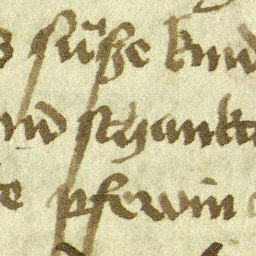 süße kind
nd schankt
pfewin